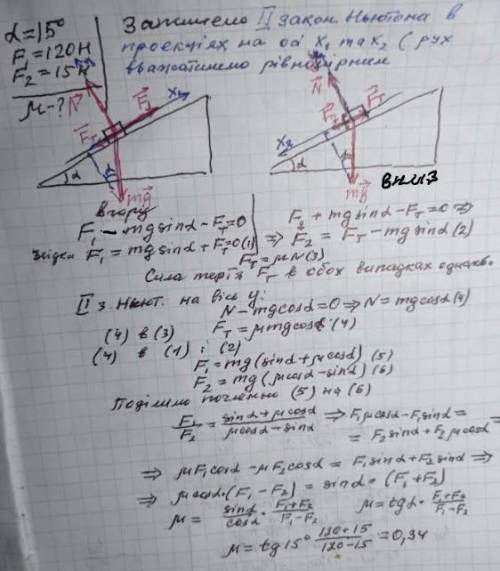 α=15°
F₁=120Н
F₂=15Н
μ-?
Запишемо II закон Ньютона в
проекціях на осі x₁ та x₂ (рух
вважатимемо рівномірним
N F₁ x₁ Fт α mg
N Fт x₂ α mg
вгору
вниз
F₁ - mgsinα - Fт = 0
Звідки F₁ = mgsinα + Fт = 0 (1)
F₂ + mgsinα - Fт = 0 ⇒
⇒ F₂ = Fт - mgsinα (2)
Fт = μN (3)
Сила тертя Fт в обох випадках однак.
II з. Ньют. на вісь y:
N - mgcosα = 0 ⇒ N = mgcosα (4)
(4) в (3) Fт = μmgcosα (4)
(4) в (1) і (2)
F₁ = mg(sinα + μcosα) (5)
F₂ = mg(μcosα - sinα) (6)
Поділимо почленно (5) на (6)
F₁/F₂ = (sinα + μcosα)/(μcosα - sinα) ⇒ F₁μcosα - F₁sinα =
= F₂sinα + F₂μcosα ⇒
⇒ μF₁cosα - μF₂cosα = F₁sinα + F₂sinα ⇒
⇒ μcosα·(F₁-F₂) = sinα·(F₁+F₂)
μ = sinα/cosα · (F₁+F₂)/(F₁-F₂) μ = tgα · (F₁+F₂)/(F₁-F₂)
μ = tg15° (120+15)/(120-15) = 0,34